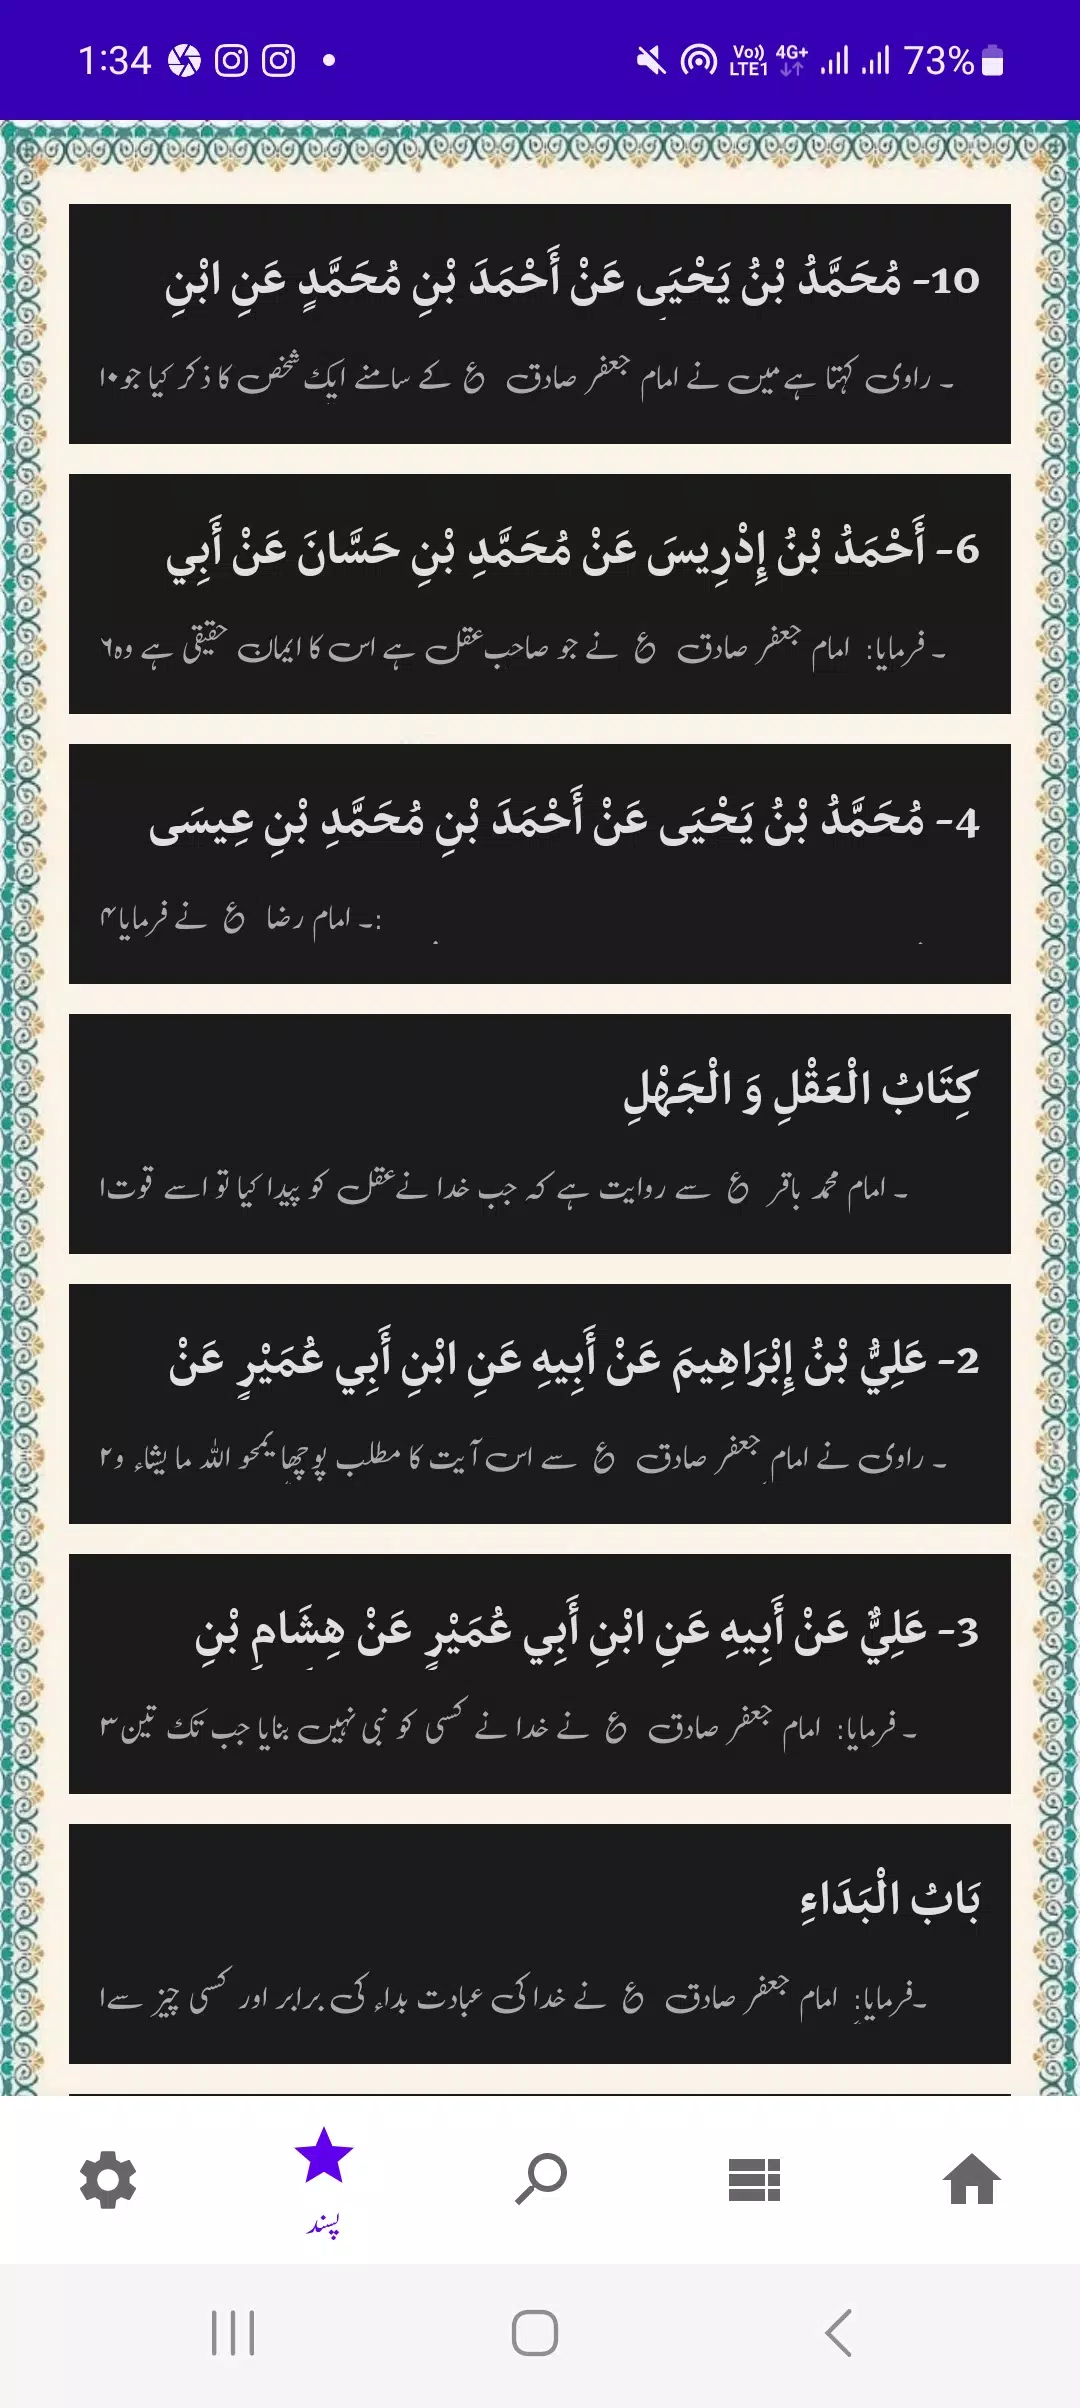 1:34
Vo)) LTE1 4G+ 73%
10- مُحَمَّدُ بْنُ يَحْيَى عَنْ أَحْمَدَ بْنِ مُحَمَّدٍ عَنِ ابْنِ
۔ راوی کہتا ہے میں نے امام جعفر صادق ع کے سامنے ایک شخص کا ذکر کیا جو۱۰
6- أَحْمَدُ بْنُ إِدْرِيسَ عَنْ مُحَمَّدِ بْنِ حَسَّانَ عَنْ أَبِي
۔ فرمایا: امام جعفر صادق ع نے جو صاحب عقل ہے اس کا ایمان حقیقی ہے وہ۶
4- مُحَمَّدُ بْنُ يَحْيَى عَنْ أَحْمَدَ بْنِ مُحَمَّدِ بْنِ عِيسَى
:۔ امام رضا ع نے فرمایا۴
كِتَابُ الْعَقْلِ وَ الْجَهْلِ
۔ امام محمد باقر ع سے روایت ہے کہ جب خدا نے عقل کو پیدا کیا تو اسے قوت۱
2- عَلِيُّ بْنُ إِبْرَاهِيمَ عَنْ أَبِيهِ عَنِ ابْنِ أَبِي عُمَيْرٍ عَنْ
۔ راوی نے امام جعفر صادق ع سے اس آیت کا مطلب پوچھا یمحو اللہ ما یشاء و۲
3- عَلِيٌّ عَنْ أَبِيهِ عَنِ ابْنِ أَبِي عُمَيْرٍ عَنْ هِشَامِ بْنِ
۔ فرمایا: امام جعفر صادق ع نے خدا نے کسی کو نبی نہیں بنایا جب تک تین۳
بَابُ الْبَدَاءِ
۔فرمایا: امام جعفر صادق ع نے خدا کی عبادت بداء کی برابر اور کسی چیز سے۱
پسند